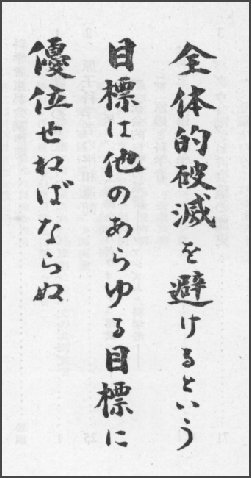 全体的破滅を避けるという
目標は他のあらゆる目標に
優位せねばならぬ